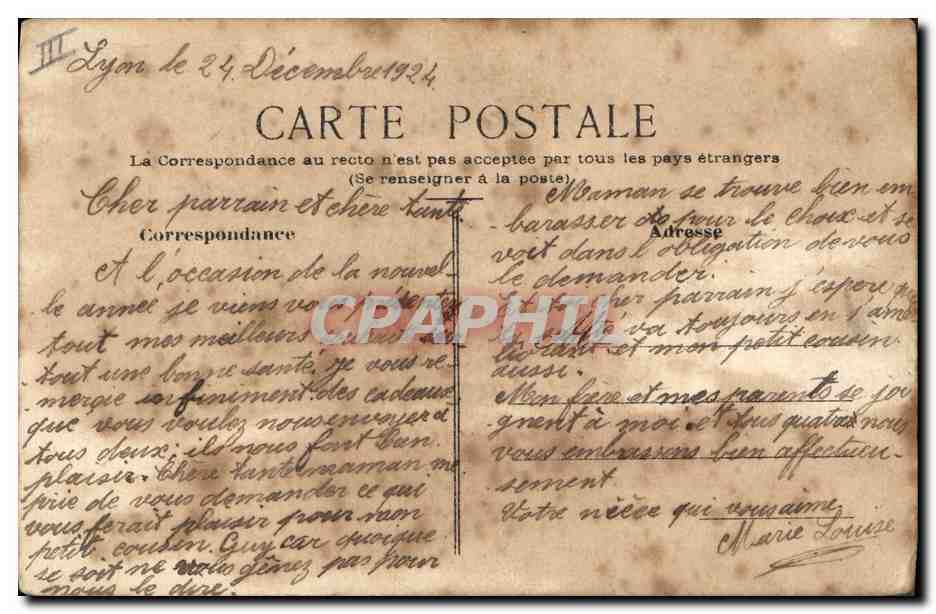 III
Lyon le 24 Décembre 1924
CARTE POSTALE
La Correspondance au recto n'est pas acceptée par tous les pays étrangers
(Se renseigner à la poste)
Cher parrain et chère tante.
Correspondance
A l'occasion de la nouvel-
le année je viens
tout mes meilleurs
tout une bonne santé. Je vous re-
mercie infiniment des cadeaux
que vous voulez nous envoyer à
tous deux; ils nous font bien
plaisir. Chère tante maman me
prie de vous demander ce qui
vous ferait plaisir pour mon
petit cousin Guy car quoique
se soit ne vous gênez pas pour
nous le dire.
Maman se trouve bien em
barasser pour le choix et se
Adresse
voit dans l'obligation de vous
le demander.
cher parrain j'espère
va toujours en s'amé
liorant et mon petit cousin
aussi.
Mon frère et mes parents se joi
gnent à moi et tous quatre nous
vous embrassons bien affectueu-
sement.
Votre nièce qui vous aime
Marie Louise
CPAPHIL